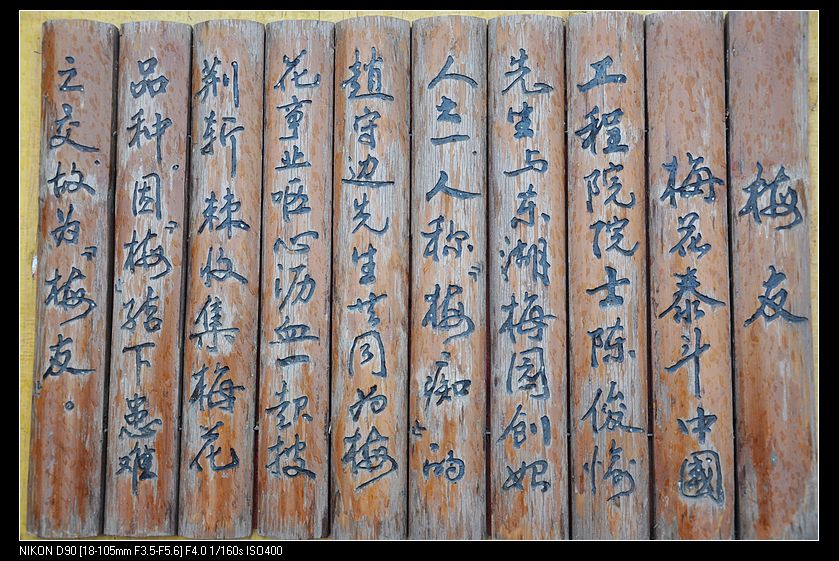 梅友
梅花泰斗中國
工程院院士陈俊愉
先生与东湖梅园创始
人之一、人称“梅痴”的
赵守边先生共同为梅
花事业呕心沥血一起披
荆斩棘收集梅花
品种。因“梅结下患难
之交，故为“梅友。
NIKON D90 [18-105mm F3.5-F5.6] F4.0 1/160s ISO400